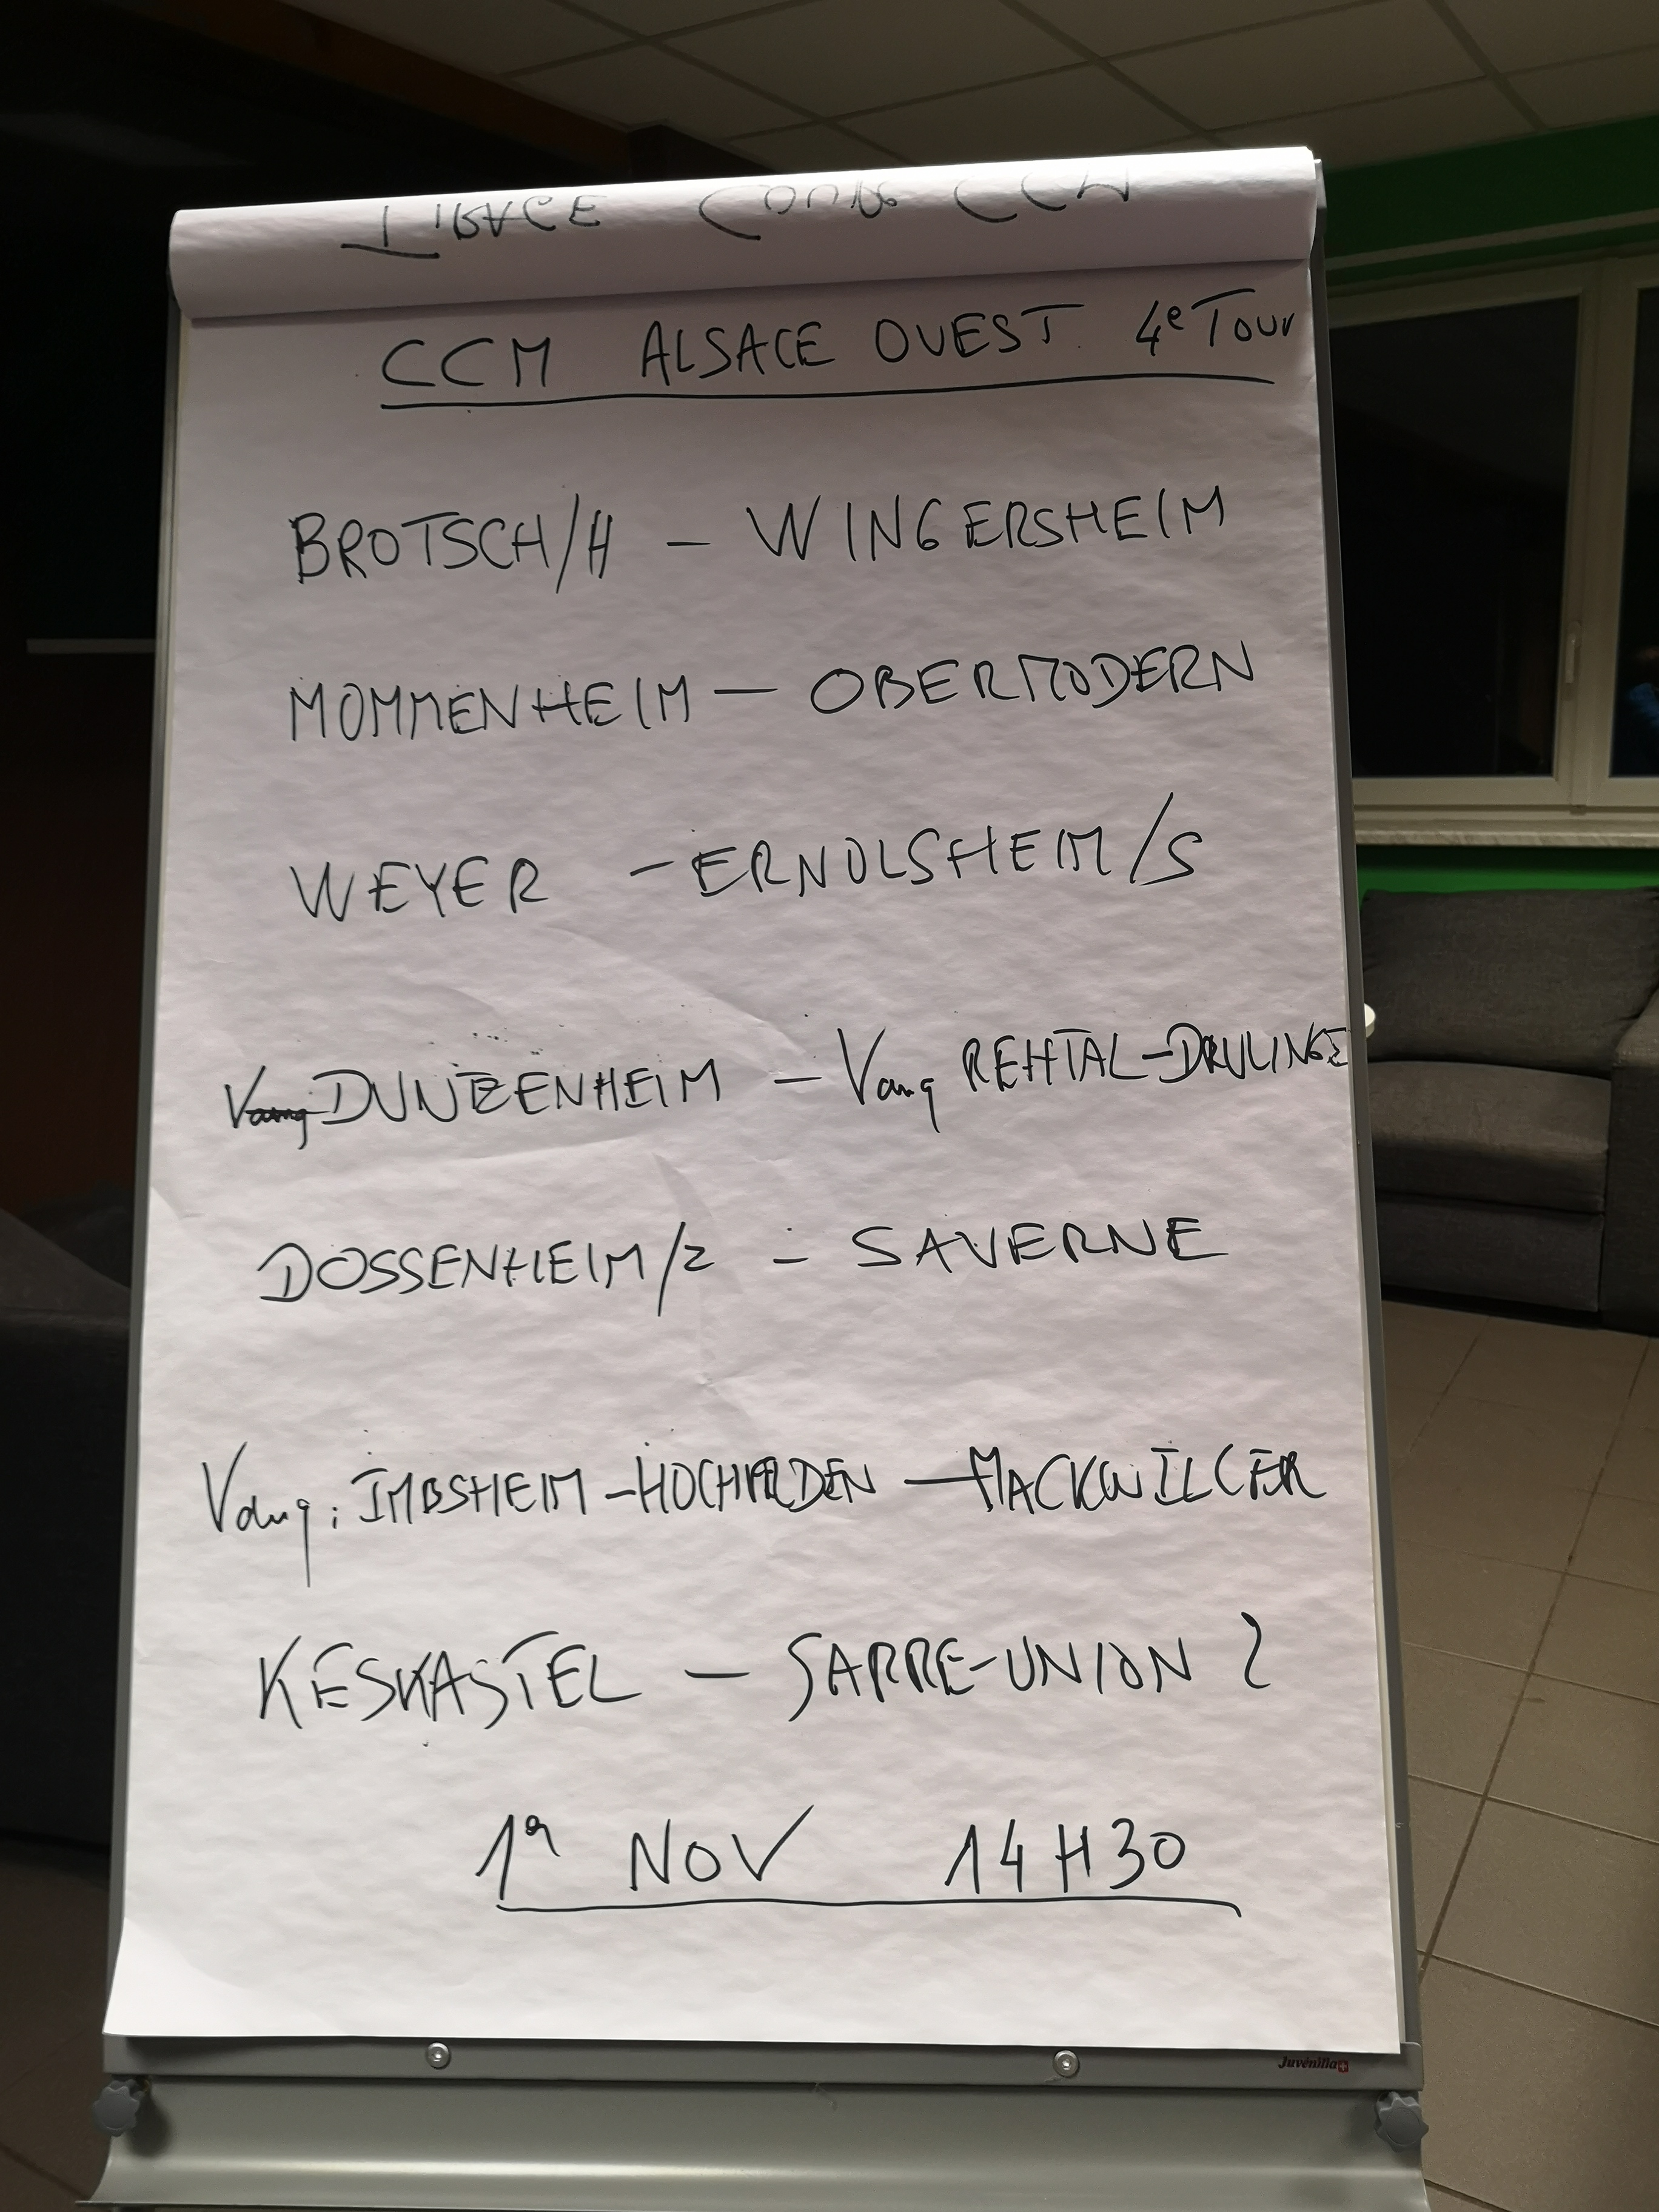 CCM ALSACE OUEST 4e Tour
BROTSCH/H — WINGERSHEIM
MOMMENHEIM — OBERMODERN
WEYER — ERNOLSHEIM/S
DUNTZENHEIM — Vainq REHTAL-DRULINGE
DOSSENHEIM/Z — SAVERNE
Vainq: IMBSHEIM-HOCHFELDEN — MACKWILLER
KESKASTEL — SARRE-UNION 2
1er NOV 14H30
Juvénilia